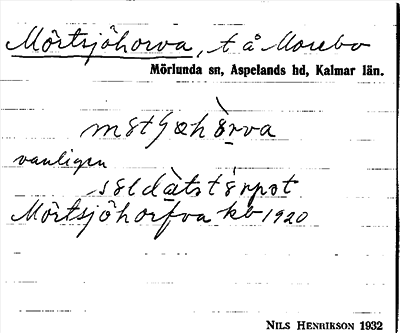 Mörtsjöhorva, t. å Mosebo
Mörlunda sn, Aspelands hd, Kalmar län.
vanligen
Mörtsjöhorfva kb 1920
NILS HENRIKSON 1932